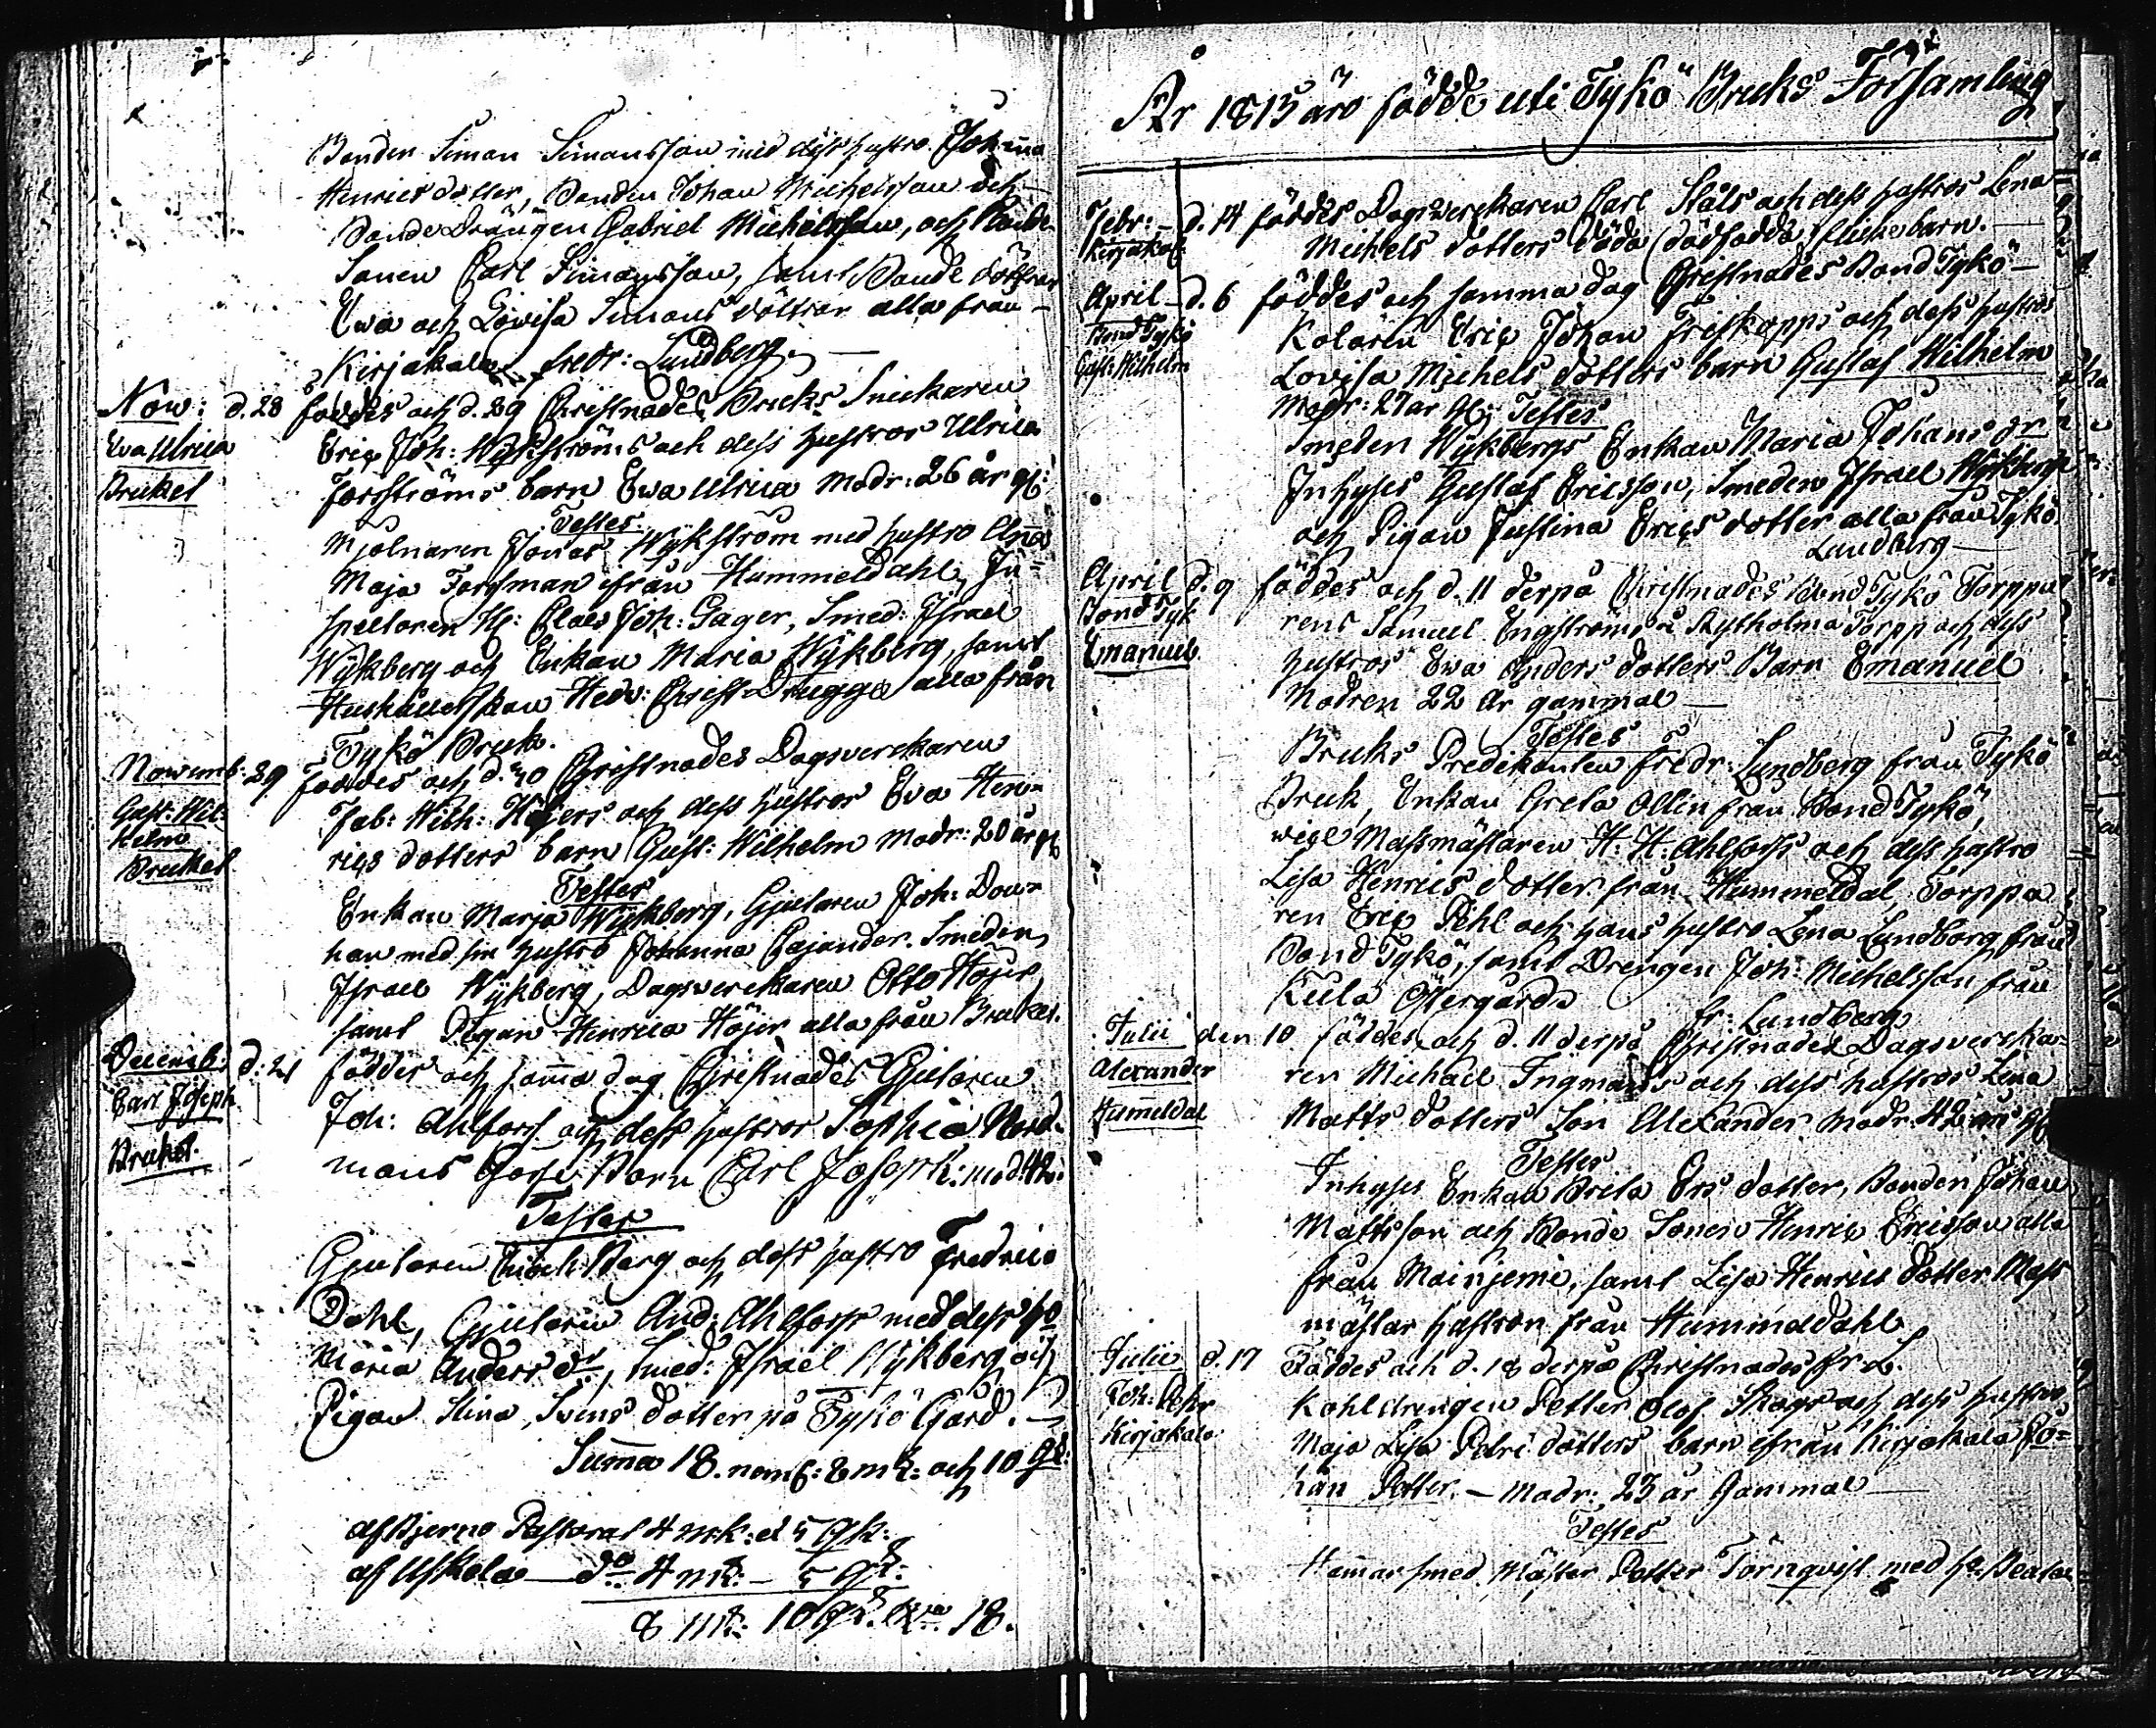 Bonden Simon Simonsson med dess hustro Johanna
Henrics dotter, Bonden Johan Michelsson och
Bonde Drängen Gabriel Michelsson, och Bonde
Sonen Carl Simonsson, samt Bonde döttrar
Ewa och Lovisa Simons döttrar alla från
Kirjakala. Fredr: Lundberg
Now: d. 28 föddes och d. 29 Christnades Bruks Snickaren
Eva Ulrica
Bruket
Eric Joh: Wykströms och dess hustros Ulrica
Forsströms barn Ewa Ulrica Modr: 26 år gl:
Testes
Mjölnaren Jonas Wykström med hustro Anna
Maja Forsman ifrån Hummeldahl, In-
spectoren H: Claes Joh: Gager, Smed: Israel
Wykberg och Enkan Maria Wykberg, samt
Hushållerskan Hedv: Christ: Drugge alla från
Tykö Bruk.
Novemb: 29 föddes och d. 30 Christnades Dagsverckaren
Gust: Wil-
helm
Bruket
Fab: Wilh: Höjers och dess hustros Eva Hen-
rics dotters barn Gust: Wilhelm Modr: 20 år gl
Testes
Enkan Marja Wykberg, Gjutaren Joh: Don-
han med sin hustro Johanna Cajander. Smeden
Israel Wykberg, Dagsverckaren Otto Höjer
samt Pigan Henrica Höjer alla från Bruket.
Decemb: d: 21 föddes och samma dag Christnades Gjutaren
Carl Joseph
Bruket.
Joh: Ahlfors och dess hustros Sophia Nord-
mans Barn Carl Joseph: mod: 42.
Testes
Gjutaren Berg och dess hustro Fredrica
Dahl, Gjutaren And: Ahlfors med dess ho
Maria Anders dr, Smed: Israel Wykberg och
Pigan Stina Svens dotter på Tykö Gård.
Summa 18. nemb: 8 mk: och 10 Qk:
af Bjerno Pastorat 4 mk: et 5 Qk:
af Uskela do 4 mk: – 5 Qk:
8 mk: 10 Qk. 18.
År 1815 äro födde uti Tykö Bruks Församling
Febr: d. 14 föddes Dagsverckaren Carl Ståls och dess hustros Lena
Kirjakala
Michels dotters döda (dödfödda) flickebarn.
April d. 6 föddes och samma dag Christnades Bond Tykö
Bond Tykö
Gust: Wilhelm
Kolaren Eric Johan Friskopps och dess hustros
Lovisa Michels dotters barn Gustaf Wilhelm
Modr: 27 år gl: Testes
Smeden Wykbergs Enkan Maria Johans dr
Inhyses Gustaf Ericsson, Smeden Israel Wykberg
och Pigan Justina Erics dotter alla från Tykö
Lundberg
April d. 9 föddes och d. 11 derpå Christnades Bond Tykö Torppa
Bond Tyk
Emanuel.
rens Samuel Engströms å Skytholma Torpp och dess
hustros Ewa Anders dotters Barn Emanuel
Modren 22 år gammal
Testes
Bruks Predikanten Fredr: Lundberg från Tykö
Bruk, Enkan Greta Ollin från Bond Tykö,
Massmästaren H: H: Ahlfors och dess hustro
Lisa Henrics dotter från Hummeldal, Torppa
ren Eric Pihl och hans hustro Lena Lundborg från
Bond Tykö, samt Drengen Joh: Michelsson från
Kula Östergårds
Fr: Lundberg
Julii den 10 föddes och d. 11 derpå Christnades Dagsverska-
Alexander
Hummeldal
ren Michael Ingmans och dess hustros Lena
Matts dotters Son Alexander modr: 42 års gl
Testes
Inhyses Enkan Brita Ers dotter, Bonden Johan
Mattsson och Bonde Sonen Henric Ericsson alla
från Mainjemi, samt Lisa Henrics dotter Mass
mästar hustron från Hummeldahl
Julii d. 17 Föddes och d. 18 derpå Christnades Fr. L.
Joh: Petter
Kirjakala
Kohldrengen Petter Olof Skogs och dess hustros
Maja Lisa Petri dotters barn ifrån Kirjakala Jo-
han Petter. – Modr: 23 år Gammal
Testes
Hammarsmed Mäster Petter Törnqvist med ho Beata